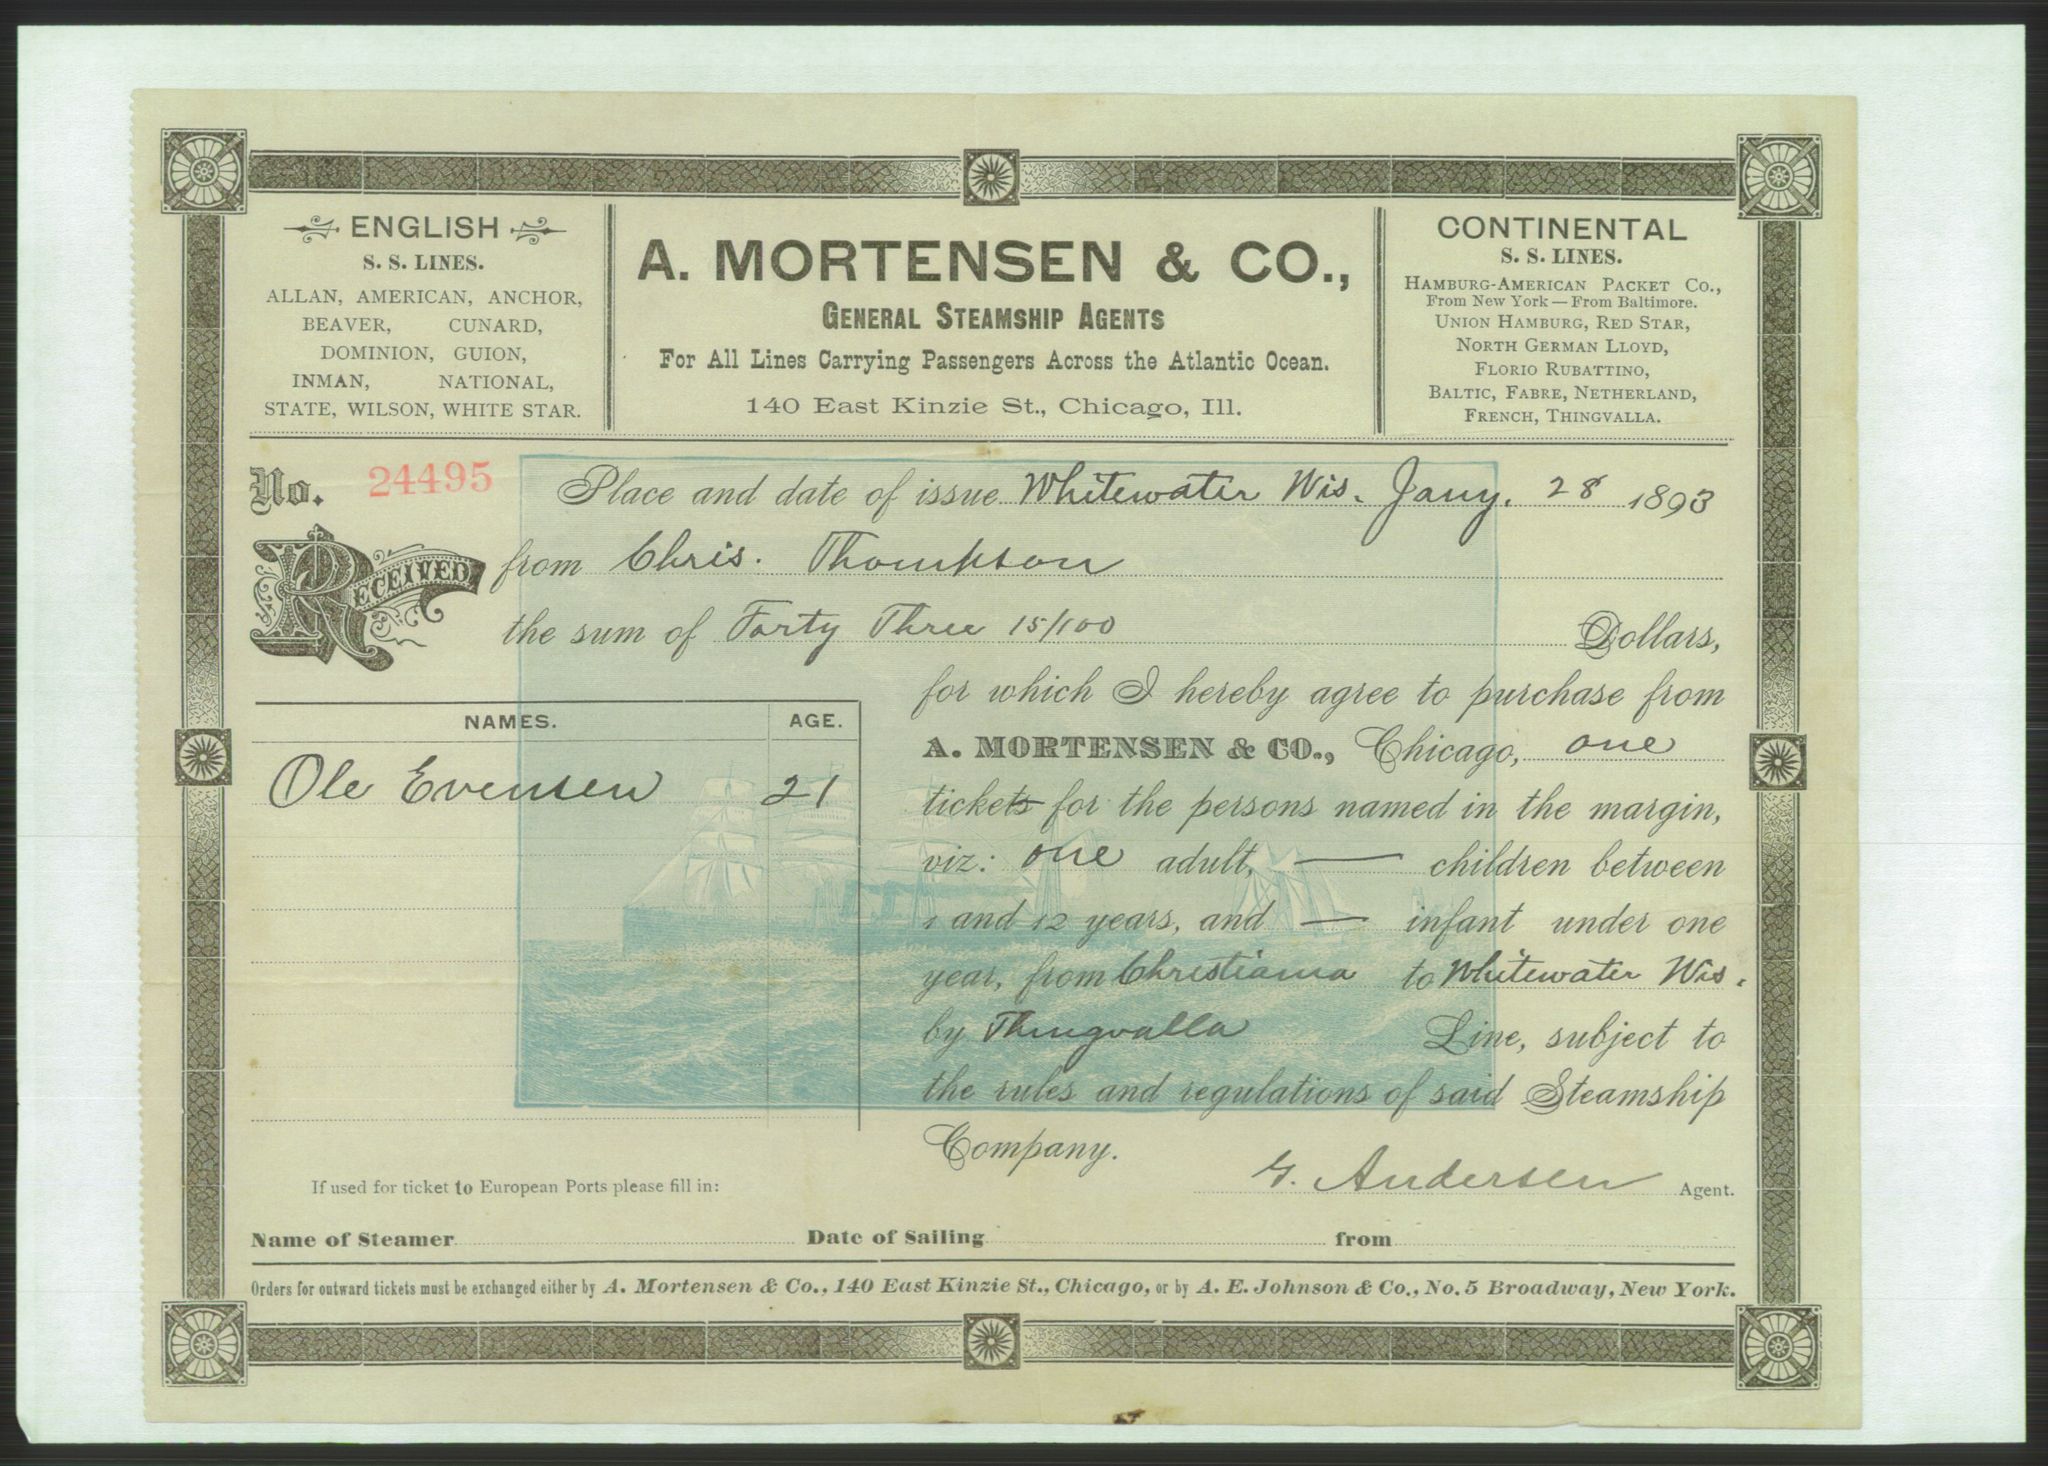 ENGLISH
S. S. LINES.
ALLAN, AMERICAN, ANCHOR,
BEAVER, CUNARD,
DOMINION, GUION,
INMAN, NATIONAL,
STATE, WILSON, WHITE STAR.
A. MORTENSEN & CO.,
GENERAL STEAMSHIP AGENTS
For All Lines Carrying Passengers Across the Atlantic Ocean.
140 East Kinzie St., Chicago, Ill.
CONTINENTAL
S. S. LINES.
HAMBURG-AMERICAN PACKET CO.,
From New York — From Baltimore.
UNION HAMBURG, RED STAR,
NORTH GERMAN LLOYD,
FLORIO RUBATTINO,
BALTIC, FABRE, NETHERLAND,
FRENCH, THINGVALLA.
No. 24495 Place and date of issue Whitewater Wis. Jany. 28 1893
RECEIVED from Chris. Thompson
the sum of Forty Three 15/100 Dollars,
for which I hereby agree to purchase from
A. MORTENSEN & CO., Chicago, one
tickets for the persons named in the margin,
viz: one adult, — children between
1 and 12 years, and — infant under one
year, from Christiania to Whitewater Wis.
by Thingvalla Line, subject to
the rules and regulations of said Steamship
Company.
NAMES. AGE.
Ole Evensen 21
G. Andersen Agent.
If used for ticket to European Ports please fill in:
Name of Steamer Date of Sailing from
Orders for outward tickets must be exchanged either by A. Mortensen & Co., 140 East Kinzie St., Chicago, or by A. E. Johnson & Co., No. 5 Broadway, New York.